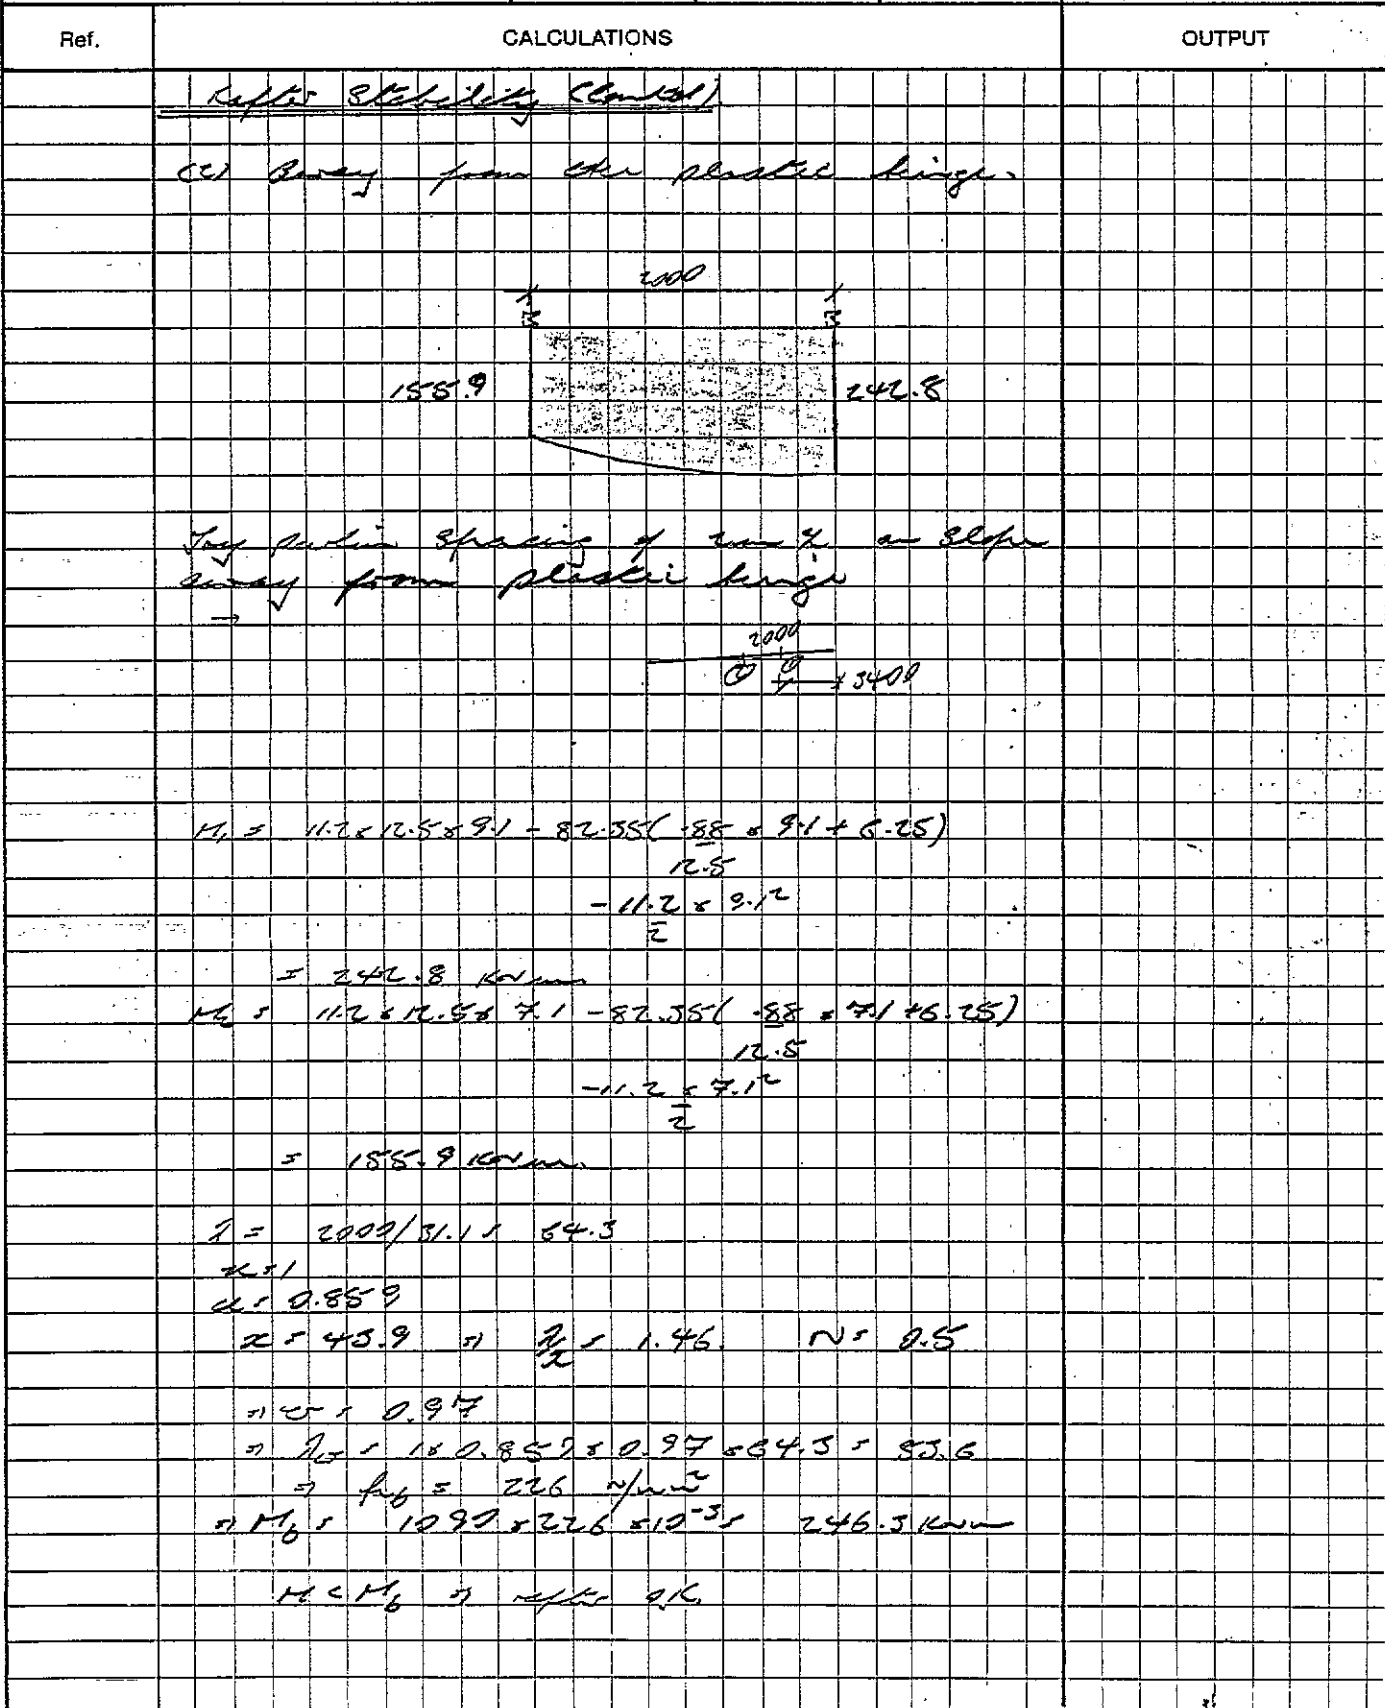 Ref.
CALCULATIONS
OUTPUT
Rafter Stability (Contd)
(2) Away from the plastic hinge.
2000
155.9
242.8
Try purlin spacing of 2m % on slope
away from plastic hinge
→
2000
3400
M₁ = 11.2 x 12.5 x 9.1 - 82.35( .88 x 9.1 + 6.25)
12.5
- 11.2 x 9.1²
2
= 242.8 kNm
M₂ = 11.2 x 12.5 x 7.1 - 82.35( .88 x 7.1 + 6.25)
12.5
- 11.2 x 7.1²
2
= 155.9 kNm.
λ = 2000/31.1 = 64.3
n = 1
u = 0.859
x = 43.9 ⇒ λ/x = 1.46. N = 0.5
⇒ v = 0.97
⇒ λ = 1 x 0.859 x 0.97 x 64.3 = 53.6
⇒ pb = 226 N/mm²
⇒ Mb = 1090 x 226 x 10⁻³ = 246.3 kNm
M < Mb ⇒ rafter O.K.